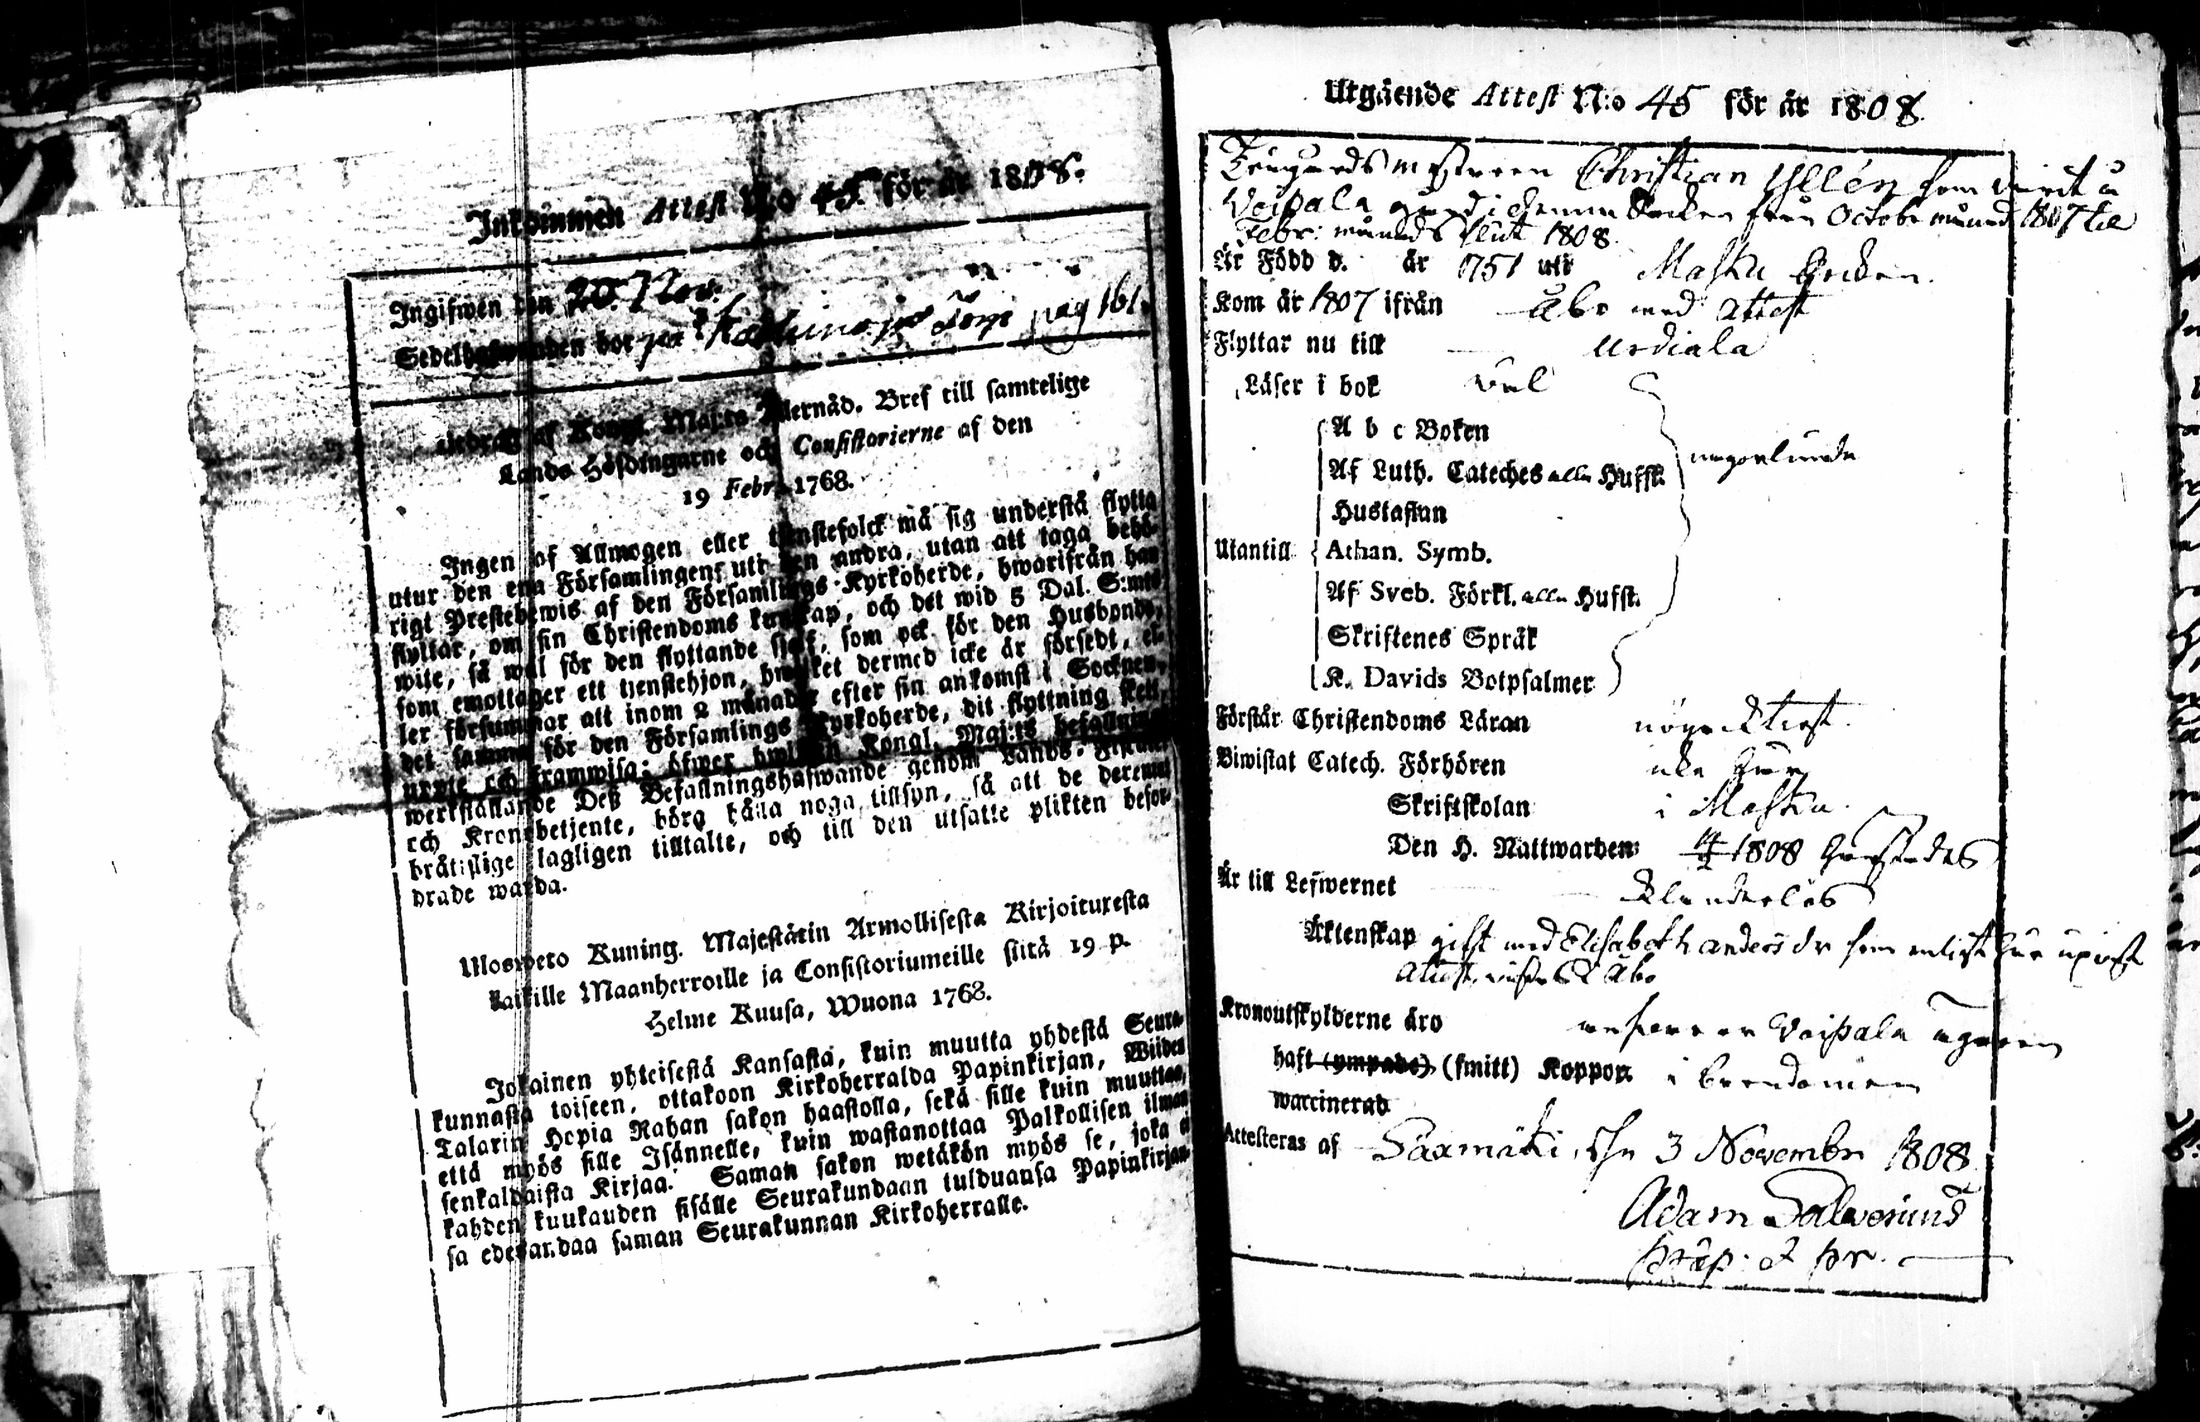 Inkommen Attest N:o 45. för år 1808.
Ingifwen den 20. Nov:
Sedelhafwanden bor på Torp pag 161.
Utdrag af Kongl. Maj:ts Allernåd. Bref till samtelige
Lands Höfdingarne och Consistorierne af den
19 Febr. 1768.
Ingen af Allmogen eller tjenstefolck må sig understå flytta
utur den ena Församlingen uti den andra, utan att taga behö-
rigt Prestebewis af den Församlings Kyrkoherde, hwarifrån han
flyttar, om sin Christendoms kunskap, och det wid 5 Dal. S:mts
wite, så wäl för den flyttande sjelf, som ock för den Husbonde,
som emottager ett tjenstehjon, hwilket dermed icke är försedt, el-
ler försummar att inom 2 månader efter sin ankomst i Socknen,
det samma för den Församlings Kyrkoherde, dit flyttning skett,
uppte och framwisa; öfwer hwilken Kongl. Maj:ts befallning
werkställande Deß Befallningshafwande genom Lands-Fiscaler
och Kronobetjente, böra hålla noga tillsyn, så att de deremot
brätslige lagligen tilltalte, och till den utsatte plikten befor-
drade warda.
Ulosweto Kuning. Majestätin Armollisesta Kirjoituxesta
kaikille Maanherroille ja Consistoriumeille siitä 19 p.
Helme Kuusa, Wuona 1768.
Jokainen yhteisestä Kansasta, kuin muutta yhdestä Seura-
kunnasta toiseen, ottakoon Kirkoherralda Papinkirjan, Wiiden
Talarin Hopia Rahan sakon haastolla, sekä sille kuin muuttaa,
että myös sille Isännelle, kuin wastanottaa Palkollisen ilman
senkaldaista Kirjaa. Saman sakon wetäkön myös se, joka ei
kahden kuukauden sisälle Seurakundaan tulduansa Papinkirjan-
sa edeskandaa saman Seurakunnan Kirkoherralle.
Utgående Attest N:o 45 för år 1808.
Christian Yllén som varit å
Voipala gård i denna Socken från October månad 1807 til
Febr: månads slut 1808.
Är Född d. år 1751 uti Masku Socken.
Kom år 1807 ifrån Åbo med attest
Flyttar nu till Urdiala
Läser i bok väl
A b c Boken
Af Luth. Cateches alla Hufst. någorlunda
Hustaflan
Utantill Athan. Symb.
Af Sveb. Förkl. alla Hufst.
Skriftenes Språk
K. Davids Botpsalmer
Förstår Christendoms Läran nögacktigt.
Biwistat Catech. Förhören icke här
Skriftskolan i Masku.
Den H. Nattwarden 1808 härstädes
Är till Lefwernet Klanderlös
Äktenskap gift med Elisabeth Anders dr som enligt här upvist
attest vistas i Åbo
Kronoutskylderne äro Voipala ägaren
haft (ympade) (smitt) Koppor i barndomen
waccinerad
Attesteras af Sääxmäki, den 3 Novembr 1808
Adam Salvenius
præp: & pr.